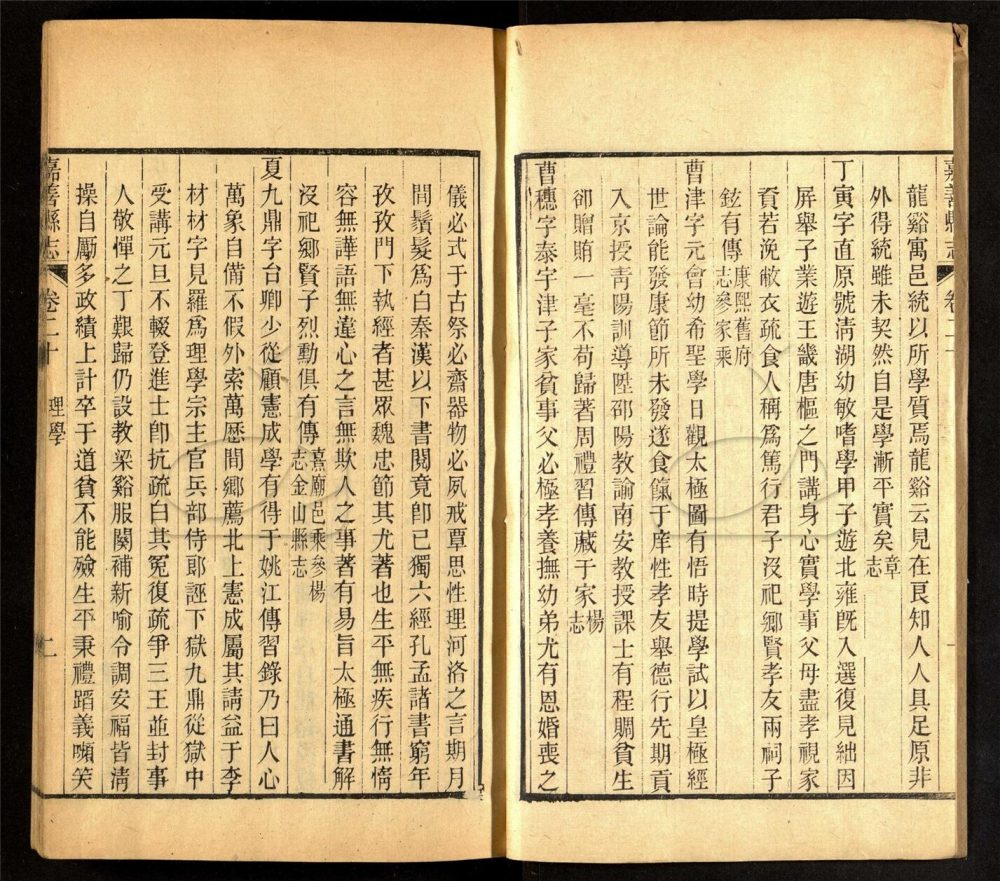 嘉善縣志 卷二十
龍谿寓邑統以所學質焉龍谿云見在良知人人具足原非
外得統雖未契然自是學漸平實矣章志
丁寅字直原號淸湖幼敏嗜學甲子遊北雍旣入選復見絀因
屏舉子業遊王畿唐樞之門講身心實學事父母盡孝視家
資若浼敝衣疏食人稱爲篤行君子沒祀鄉賢孝友兩祠子
鉉有傳康熙舊府志參家乘
曹津字元會幼希聖學日觀太極圖有悟時提學試以皇極經
世論能發康節所未發遂食餼于庠性孝友舉德行先期貢
入京授靑陽訓導陞邵陽教諭南安教授課士有程賙貧生
卻贈賄一毫不苟歸著周禮習傳藏于家楊志
曹穗字泰宇津子家貧事父必極孝養撫幼弟尤有恩婚喪之
儀必式于古祭必齋器物必夙戒覃思性理河洛之言期月
間鬚髮爲白秦漢以下書閱竟卽已獨六經孔孟諸書窮年
孜孜門下執經者甚眾魏忠節其尤著也生平無疾行無惰
容無譁語無違心之言無欺人之事著有易旨太極通書解
沒祀鄉賢子烈勳俱有傳熹廟邑乘參楊志金山縣志
夏九鼎字台卿少從顧憲成學有得于姚江傳習錄乃曰人心
萬象自備不假外索萬歷間鄉薦北上憲成屬其請益于李
材材字見羅爲理學宗主官兵部侍郞誣下獄九鼎從獄中
受講元旦不輟登進士卽抗疏白其冤復疏爭三王並封事
人敬憚之丁艱歸仍設教梁谿服闋補新喻令調安福皆淸
操自勵多政績上計卒于道貧不能殮生平秉禮蹈義嚬笑
嘉善縣志 卷二十 理學 二